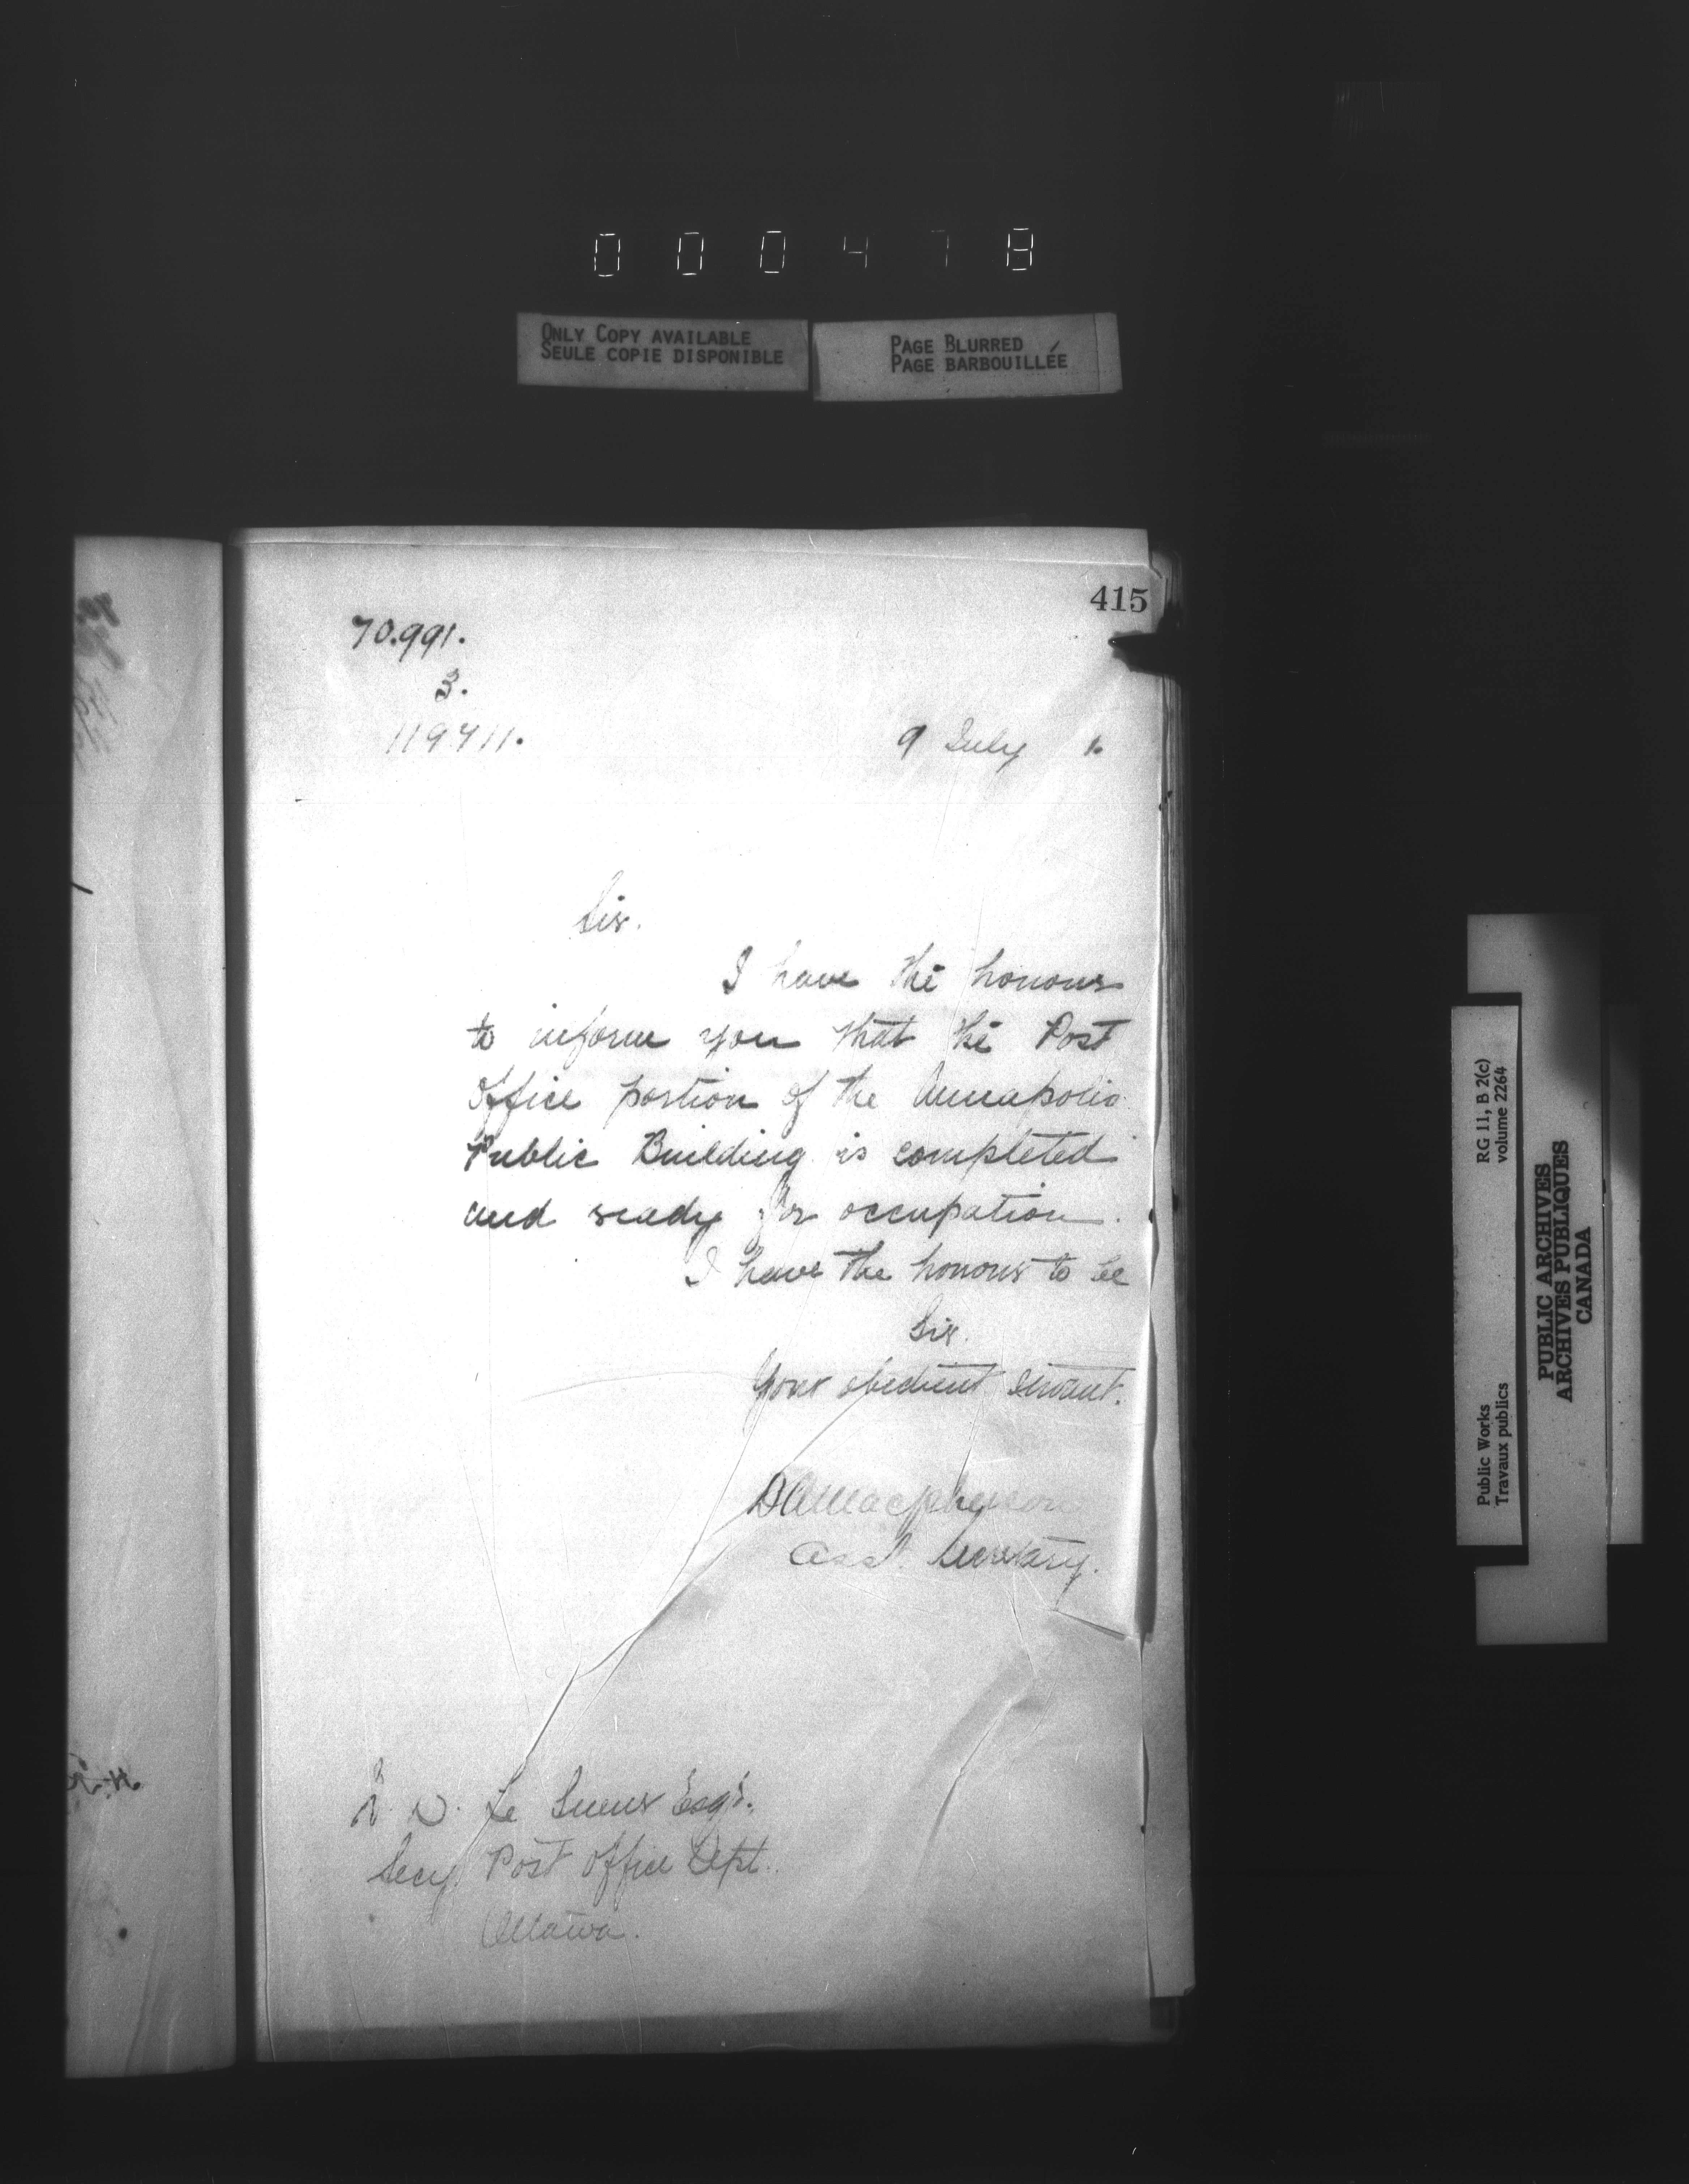 000478
ONLY COPY AVAILABLE
SEULE COPIE DISPONIBLE
PAGE BLURRED
PAGE BARBOUILLÉE
415
70.991.
3.
119711.
9 July 1.
Sir.
I have the honour
to inform you that the Post
Office portion of the Annapolis
Public Building is completed
and ready for occupation.
I have the honour to be
Sir.
Your obedient servant.
D A Macpherson
Asst. Secretary.
D. Le Sueur Esqr.
Secy Post Office Dept.
Ottawa.
Public Works
Travaux publics
RG 11, B 2(c)
volume 2264
PUBLIC ARCHIVES
ARCHIVES PUBLIQUES
CANADA